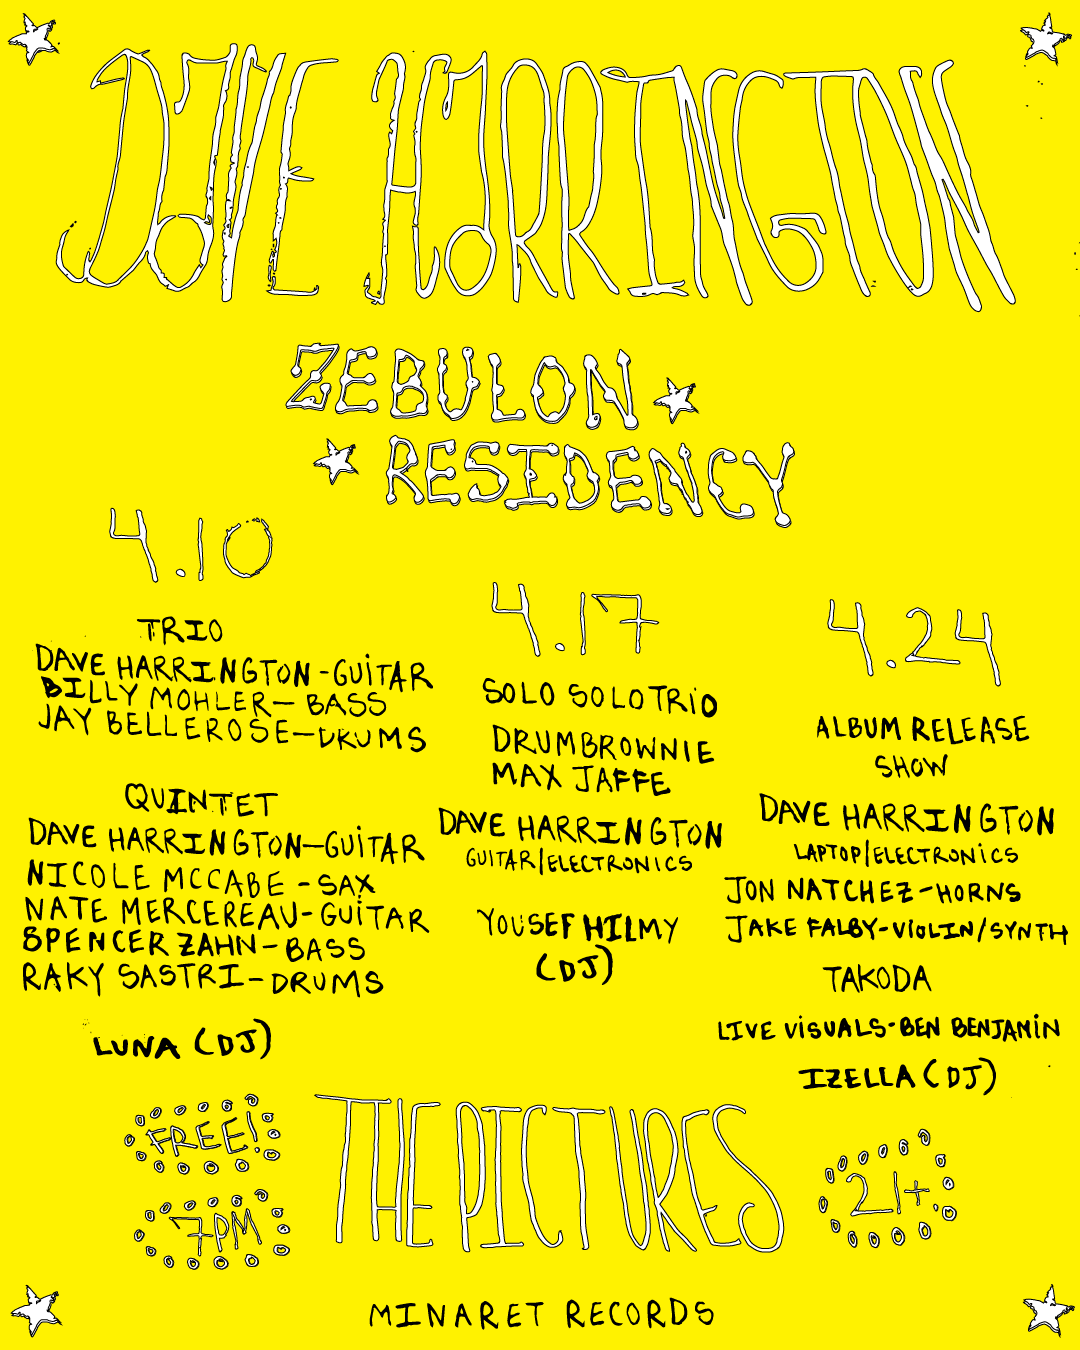 DAVE HARRINGTON
ZEBULON
RESIDENCY
4.10
TRIO
DAVE HARRINGTON-GUITAR
BILLY MOHLER-BASS
JAY BELLEROSE-DRUMS
QUINTET
DAVE HARRINGTON-GUITAR
NICOLE MCCABE-SAX
NATE MERCEREAU-GUITAR
SPENCER ZAHN-BASS
RAKY SASTRI-DRUMS
LUNA (DJ)
4.17
SOLO SOLO TRIO
DRUMBROWNIE
MAX JAFFE
DAVE HARRINGTON
GUITAR/ELECTRONICS
YOUSEF HILMY
(DJ)
4.24
ALBUM RELEASE
SHOW
DAVE HARRINGTON
LAPTOP/ELECTRONICS
JON NATCHEZ-HORNS
JAKE FALBY-VIOLIN/SYNTH
TAKODA
LIVE VISUALS-BEN BENJAMIN
IZELLA (DJ)
FREE!
7PM
THE PICTURES
21+
MINARET RECORDS